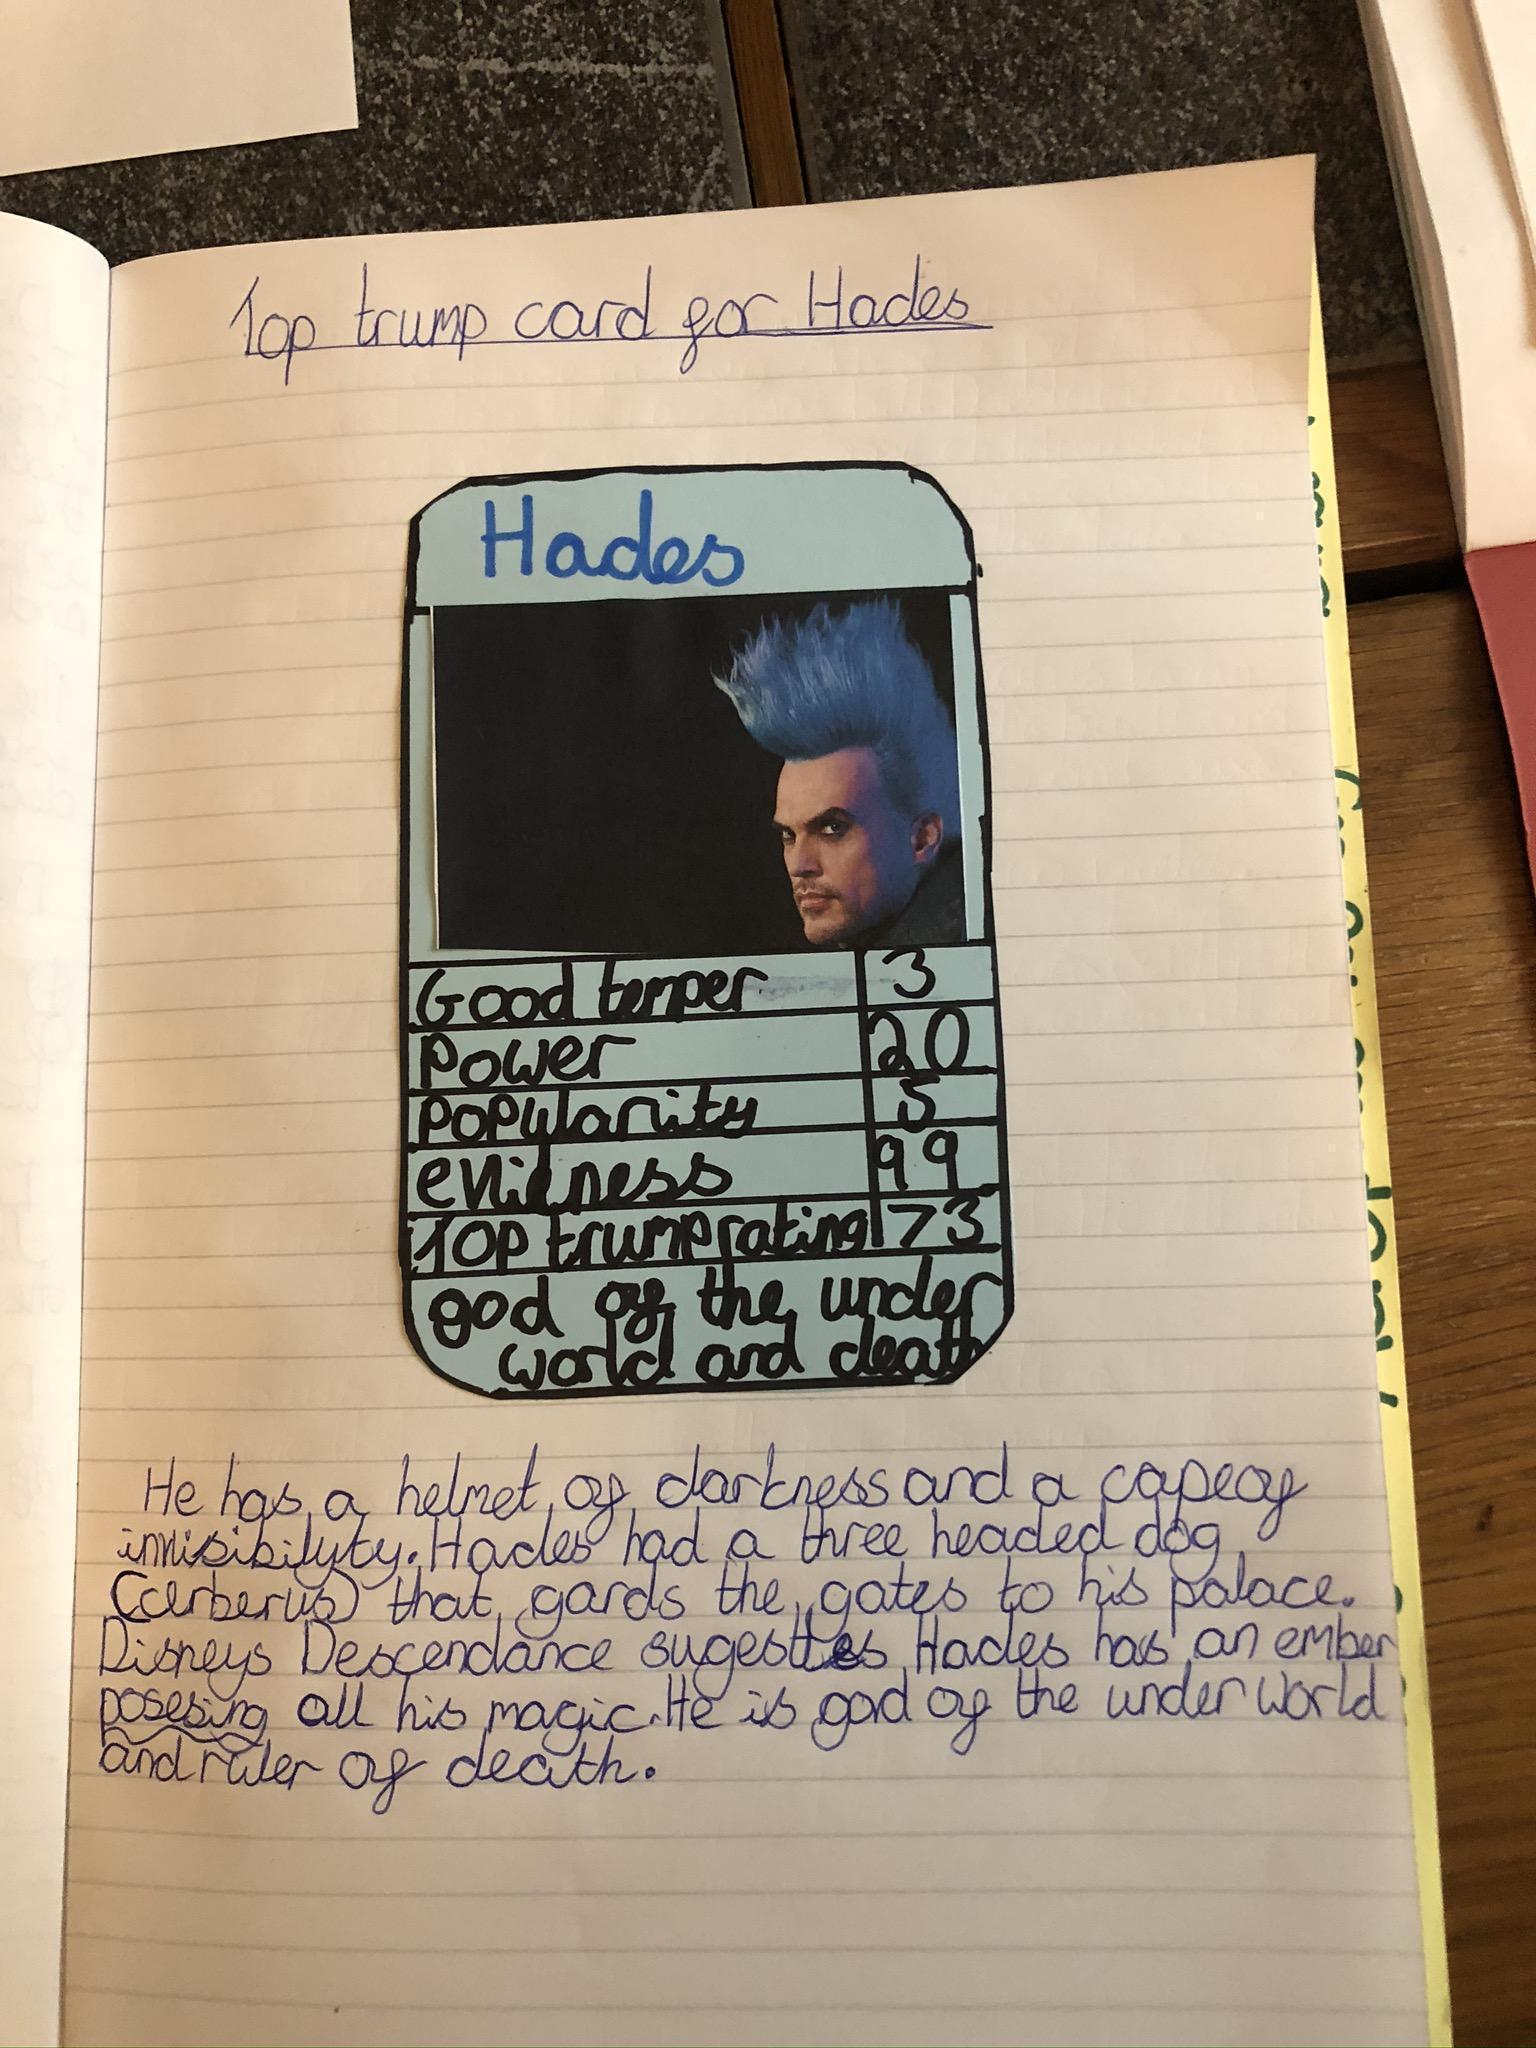 Top trump card for Hades
Hades
Good temper 3
Power 20
Popularity 5
evilness 99
Top trump rating 73
god of the under
world and death
He has a helmet of darkness and a cape of
invisibilyty. Hades had a three headed dog
(cerberus) that gards the gates to his palace.
Disneys Descendance sugesttes Hades has an ember
posesing all his magic. He is god of the under world
and ruler of death.